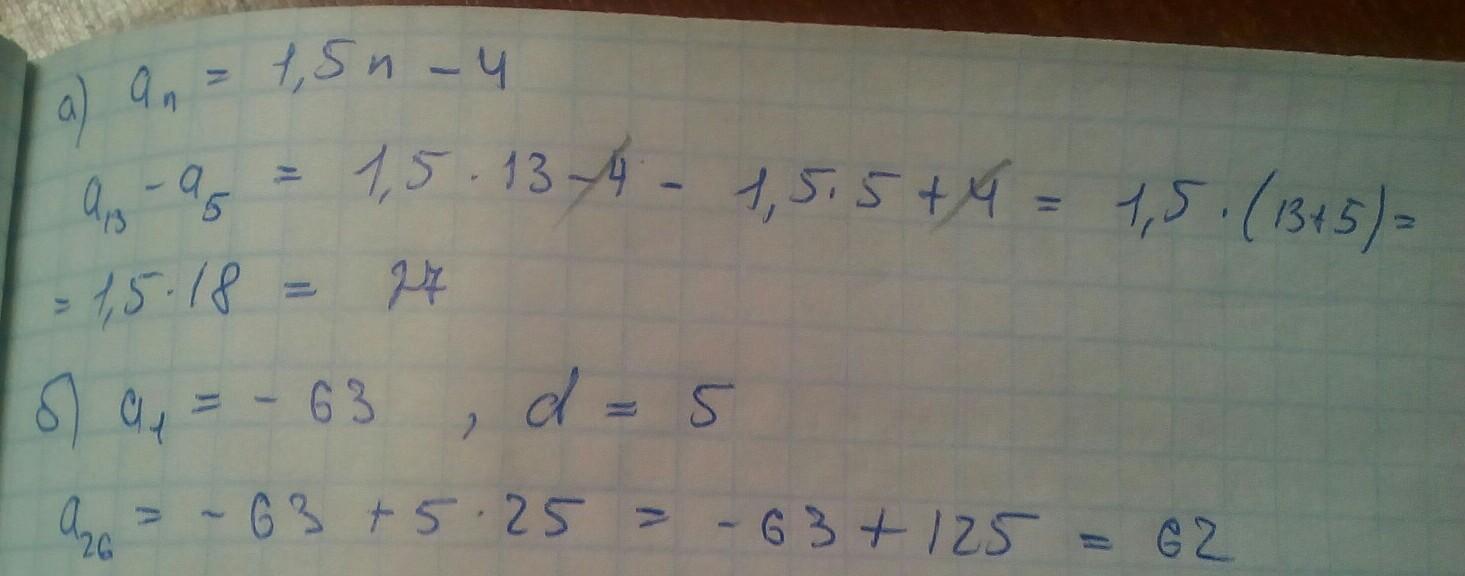 а) aₙ = 1,5n - 4
a₁₃ - a₅ = 1,5 · 13 - 4 - 1,5 · 5 + 4 = 1,5 · (13+5) =
= 1,5 · 18 = 27
б) a₁ = - 63 , d = 5
a₂₆ = - 63 + 5 · 25 = - 63 + 125 = 62